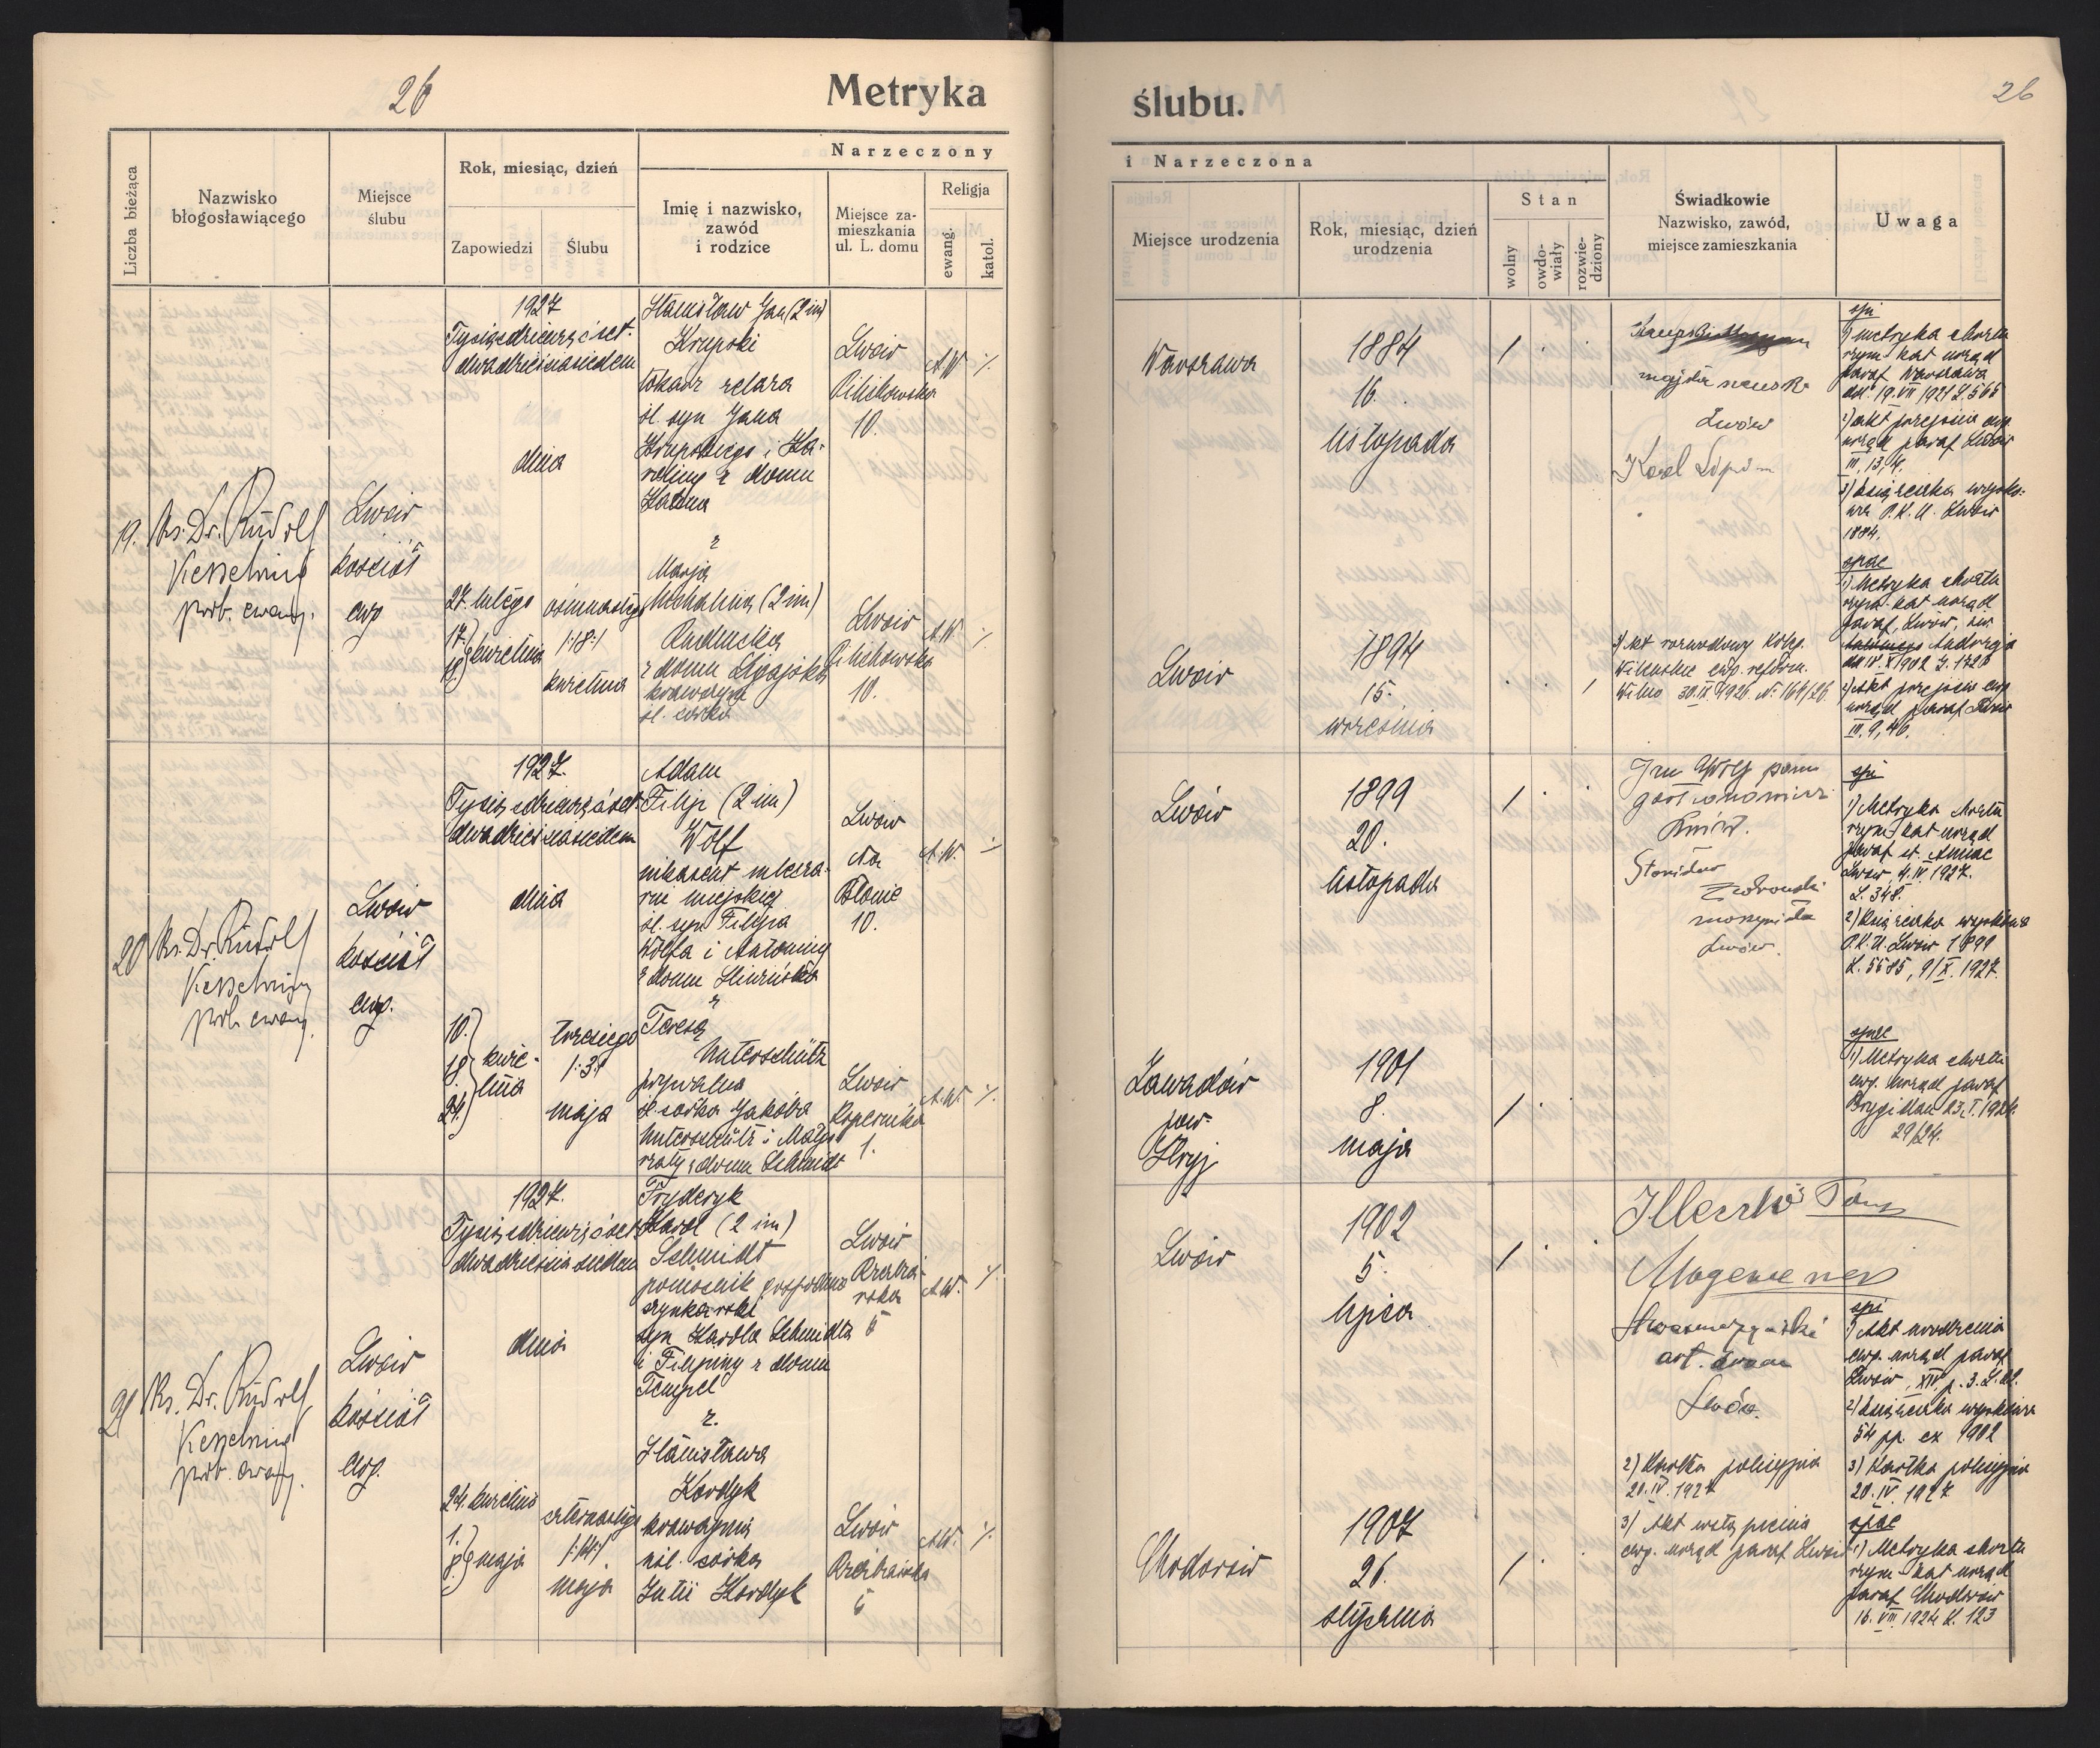 26
Metryka
ślubu.
26
Liczba bieżąca
Nazwisko
błogosławiącego
Miejsce
ślubu
Rok, miesiąc, dzień
Zapowiedzi
Ślubu
Narzeczony
Imię i nazwisko,
zawód
i rodzice
Miejsce za-
mieszkania
ul. L. domu
Religja
ewang.
katol.
i Narzeczona
Miejsce urodzenia
Rok, miesiąc, dzień
urodzenia
Stan
wolny
owdo-
wiały
rozwie-
dziony
Świadkowie
Nazwisko, zawód,
miejsce zamieszkania
Uwaga
19.
Ks. Dr. Rudolf
Kesselring
prob. ewang.
Lwów
kościół
ewg
1927
Tysiącdziewięćset
dwadzieściasiedem
dnia
27. lutego
17.
kwietnia
ósmnastego
/:18:/
kwietnia
Stanisław Jan (2 im)
Krupski
tokarz żelaza
śl. syn Jana
Krupskiego i Ka-
roliny z domu
z
Marja
Michalina (2 im)
Rudnicka
z domu
krawczyni
śl. córka
Lwów
10.
A.W. ./.
Lwów
10.
A.W. ./.
Warszawa
1884
16.
listopada
/
Lwów
Karol
Lwów
1894
15.
września
/
3) Akt rozwodowy Koleg.
Wileńskie ewg. reform.
Wilno 30.IX.1926. № 164/26
1) metryka chrztu
rzym. kat urząd
paraf Warszawa
2) akt przejścia ewg.
urząd paraf Lwów
III, 13, 4.
3) książeczka wojsko-
wa P.K.U. Lwów
1884.
1) Metryka chrztu
rzym. kat urząd
paraf, Lwów, św.
2) Akt przejścia ewg
urząd paraf Lwów
IV. 9, 46.
20
Ks. Dr. Rudolf
Kesselring
prob. ewang.
Lwów
kościół
ewg.
1927.
Tysiącdziewięćset
dwadzieściasiedem
dnia
10.
24.
kwie-
tnia
trzeciego
/:3:/
maja
Adam
Filip (2 im)
Wolf
inkasent mleczar-
ni miejskiej
śl. syn Filipa
Wolfa i Antoniny
z domu
z
Teresą
Unterschütz
prywatna
śl. córka Jakóba
Unterschütz i Małgo-
rzaty z domu Schmidt
Lwów
Na
Błonie
10.
A.W. ./.
Lwów
Kopernika
1.
A.W. ./.
Lwów
1899
20.
listopada
/
Stanisław
maszynista
Lwów.
Zawadów
pow.
Stryj
1901
8.
maja
/
1) Metryka chrztu
rzym. kat urząd
paraf św. Anny
Lwów, 4.IV 1927.
L. 348.
2) Książeczka wojskowa
P.K.U. Lwów 1899
L. 5585, 9/X. 1927.
1) Metryka chrztu
ewg. urząd paraf
Brygidau 23. I. 1924.
29/24.
21
Ks. Dr. Rudolf
Kesselring
prob. ewang.
Lwów
kościół
ewg.
1927.
Tysiącdziewięćset
dwadzieściasiedem
dnia
24. kwietnia
1.
8.
maja
czternastego
/:14:/
maja
Fryderyk
Karol (2 im)
Schmidt
pomocnik
szynkarski
syn Karola Schmidta
i Filipiny z domu
Tempel
z.
Stanisława
Kordyk
krawczyni
nśl. córka
Julii Kordyk
Lwów
5
A.W. ./.
Lwów
5
A.W. ./.
Lwów
1902
5.
lipca
/
art. dram
Lwów.
2) Kartka policyjna
20.IV.1927
3) Akt wstąpienia
ewg. urząd paraf Lwów
Chodorów
1907
26.
stycznia
/
1) Akt urodzenia
ewg. urząd paraf
Lwów, XIV p. 3. L.
2) książeczka wojskowa
54 pp. ex 1902
3) Kartka policyjna
20.IV.1927
1) Metryka chrztu
rzym. kat urząd
paraf Chodorów
16. VIII 1924 L. 123